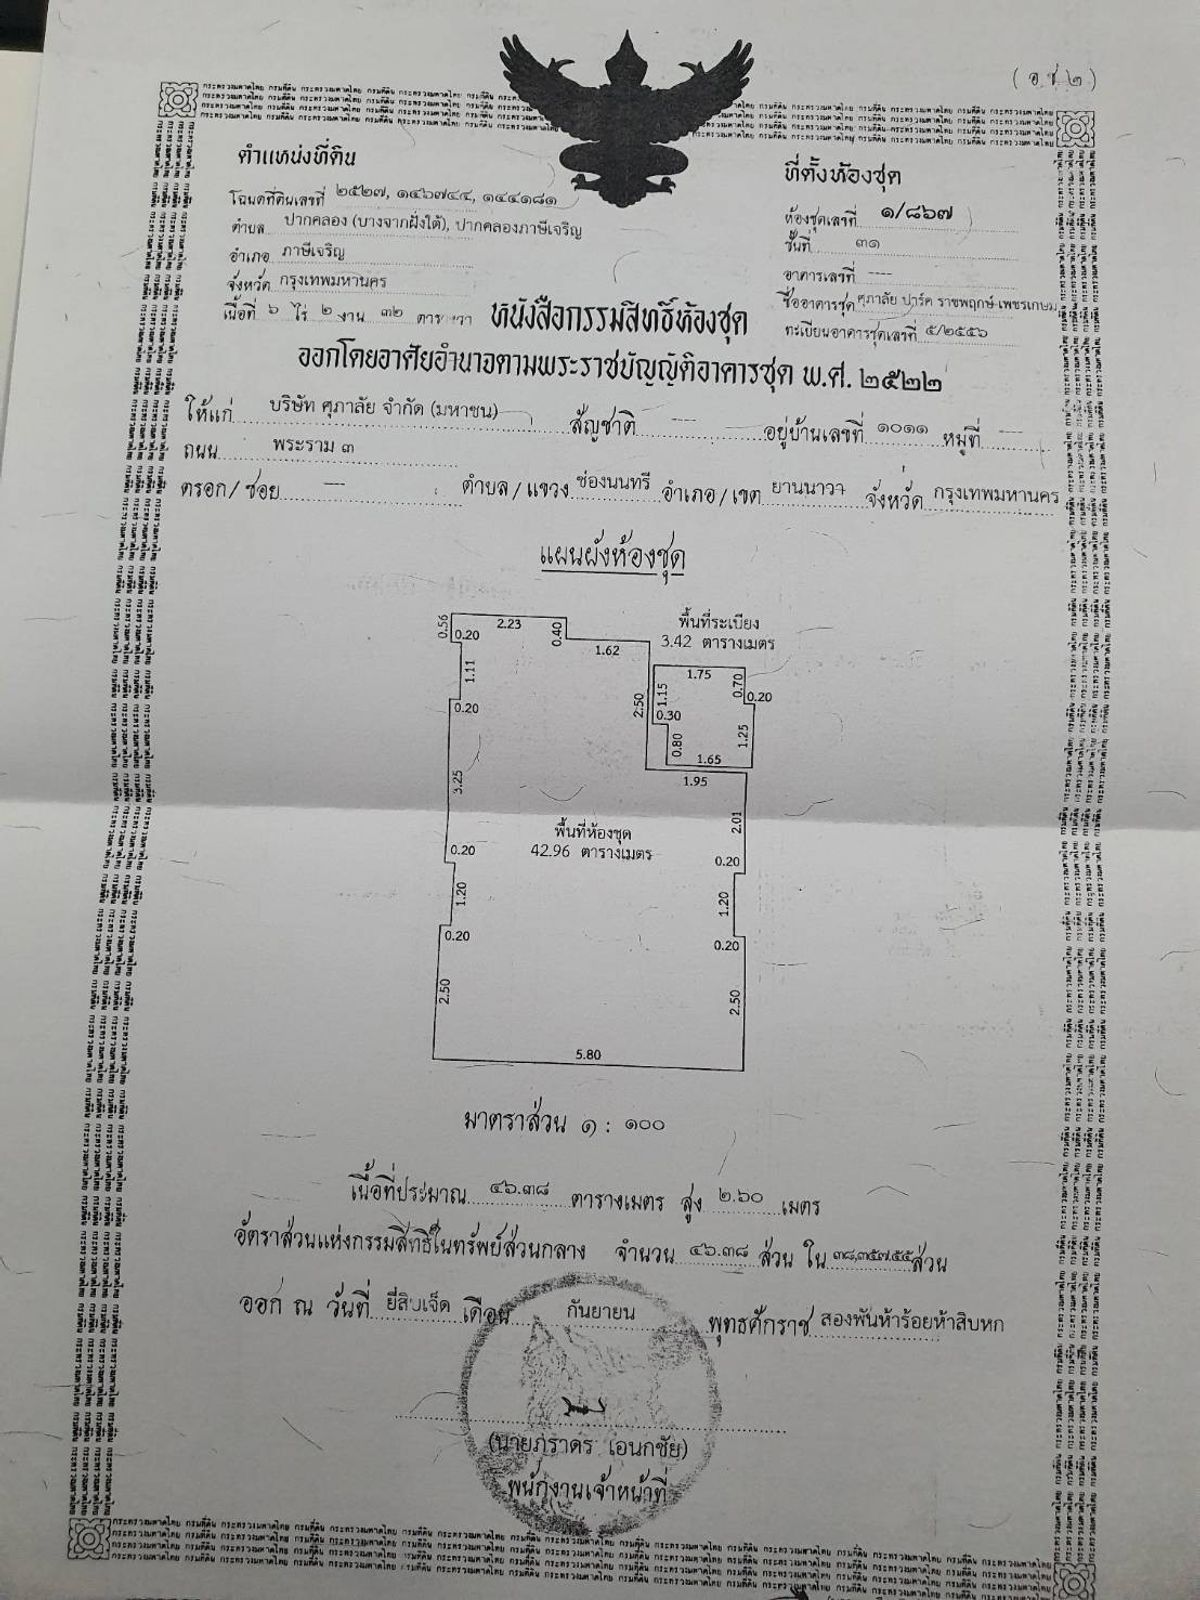 ( อ.ช.๒ )
ตำแหน่งที่ดิน
โฉนดที่ดินเลขที่ ๒๕๒๗, ๑๔๖๗๔๔, ๑๔๔๑๘๑
ตำบล ปากคลอง (บางจากฝั่งใต้), ปากคลองภาษีเจริญ
อำเภอ ภาษีเจริญ
จังหวัด กรุงเทพมหานคร
เนื้อที่ ๖ ไร่ ๒ งาน ๓๒ ตารางวา
ที่ตั้งห้องชุด
ห้องชุดเลขที่ ๑/๘๖๗
ชั้นที่ ๓๑
อาคารเลขที่ ----
ชื่ออาคารชุด ศุภาลัย ปาร์ค ราชพฤกษ์-เพชรเกษม
ทะเบียนอาคารชุดเลขที่ ๕/๒๕๕๖
หนังสือกรรมสิทธิ์ห้องชุด
ออกโดยอาศัยอำนาจตามพระราชบัญญัติอาคารชุด พ.ศ. ๒๕๒๒
ให้แก่ บริษัท ศุภาลัย จำกัด (มหาชน) สัญชาติ ---- อยู่บ้านเลขที่ ๑๐๑๑ หมู่ที่ ----
ถนน พระราม ๓
ตรอก/ซอย ---- ตำบล/แขวง ช่องนนทรี อำเภอ/เขต ยานนาวา จังหวัด กรุงเทพมหานคร
แผนผังห้องชุด
0.56 2.23 0.40
0.20 1.62
พื้นที่ระเบียง
3.42 ตารางเมตร
1.11 2.50 1.15 1.75 0.70
0.20 0.30 0.20
0.80 1.65 1.25
3.25 1.95
2.01
พื้นที่ห้องชุด
42.96 ตารางเมตร
0.20 0.20
1.20 1.20
0.20 0.20
2.50 2.50
5.80
มาตราส่วน ๑ : ๑๐๐
เนื้อที่ประมาณ ๔๖.๓๘ ตารางเมตร สูง ๒.๖๐ เมตร
อัตราส่วนแห่งกรรมสิทธิ์ในทรัพย์ส่วนกลาง จำนวน ๔๖.๓๘ ส่วน ใน ๓๘,๓๕๗.๕๕ ส่วน
ออก ณ วันที่ ยี่สิบเจ็ด เดือน กันยายน พุทธศักราช สองพันห้าร้อยห้าสิบหก
(นายภราดร เอนกชัย)
พนักงานเจ้าหน้าที่